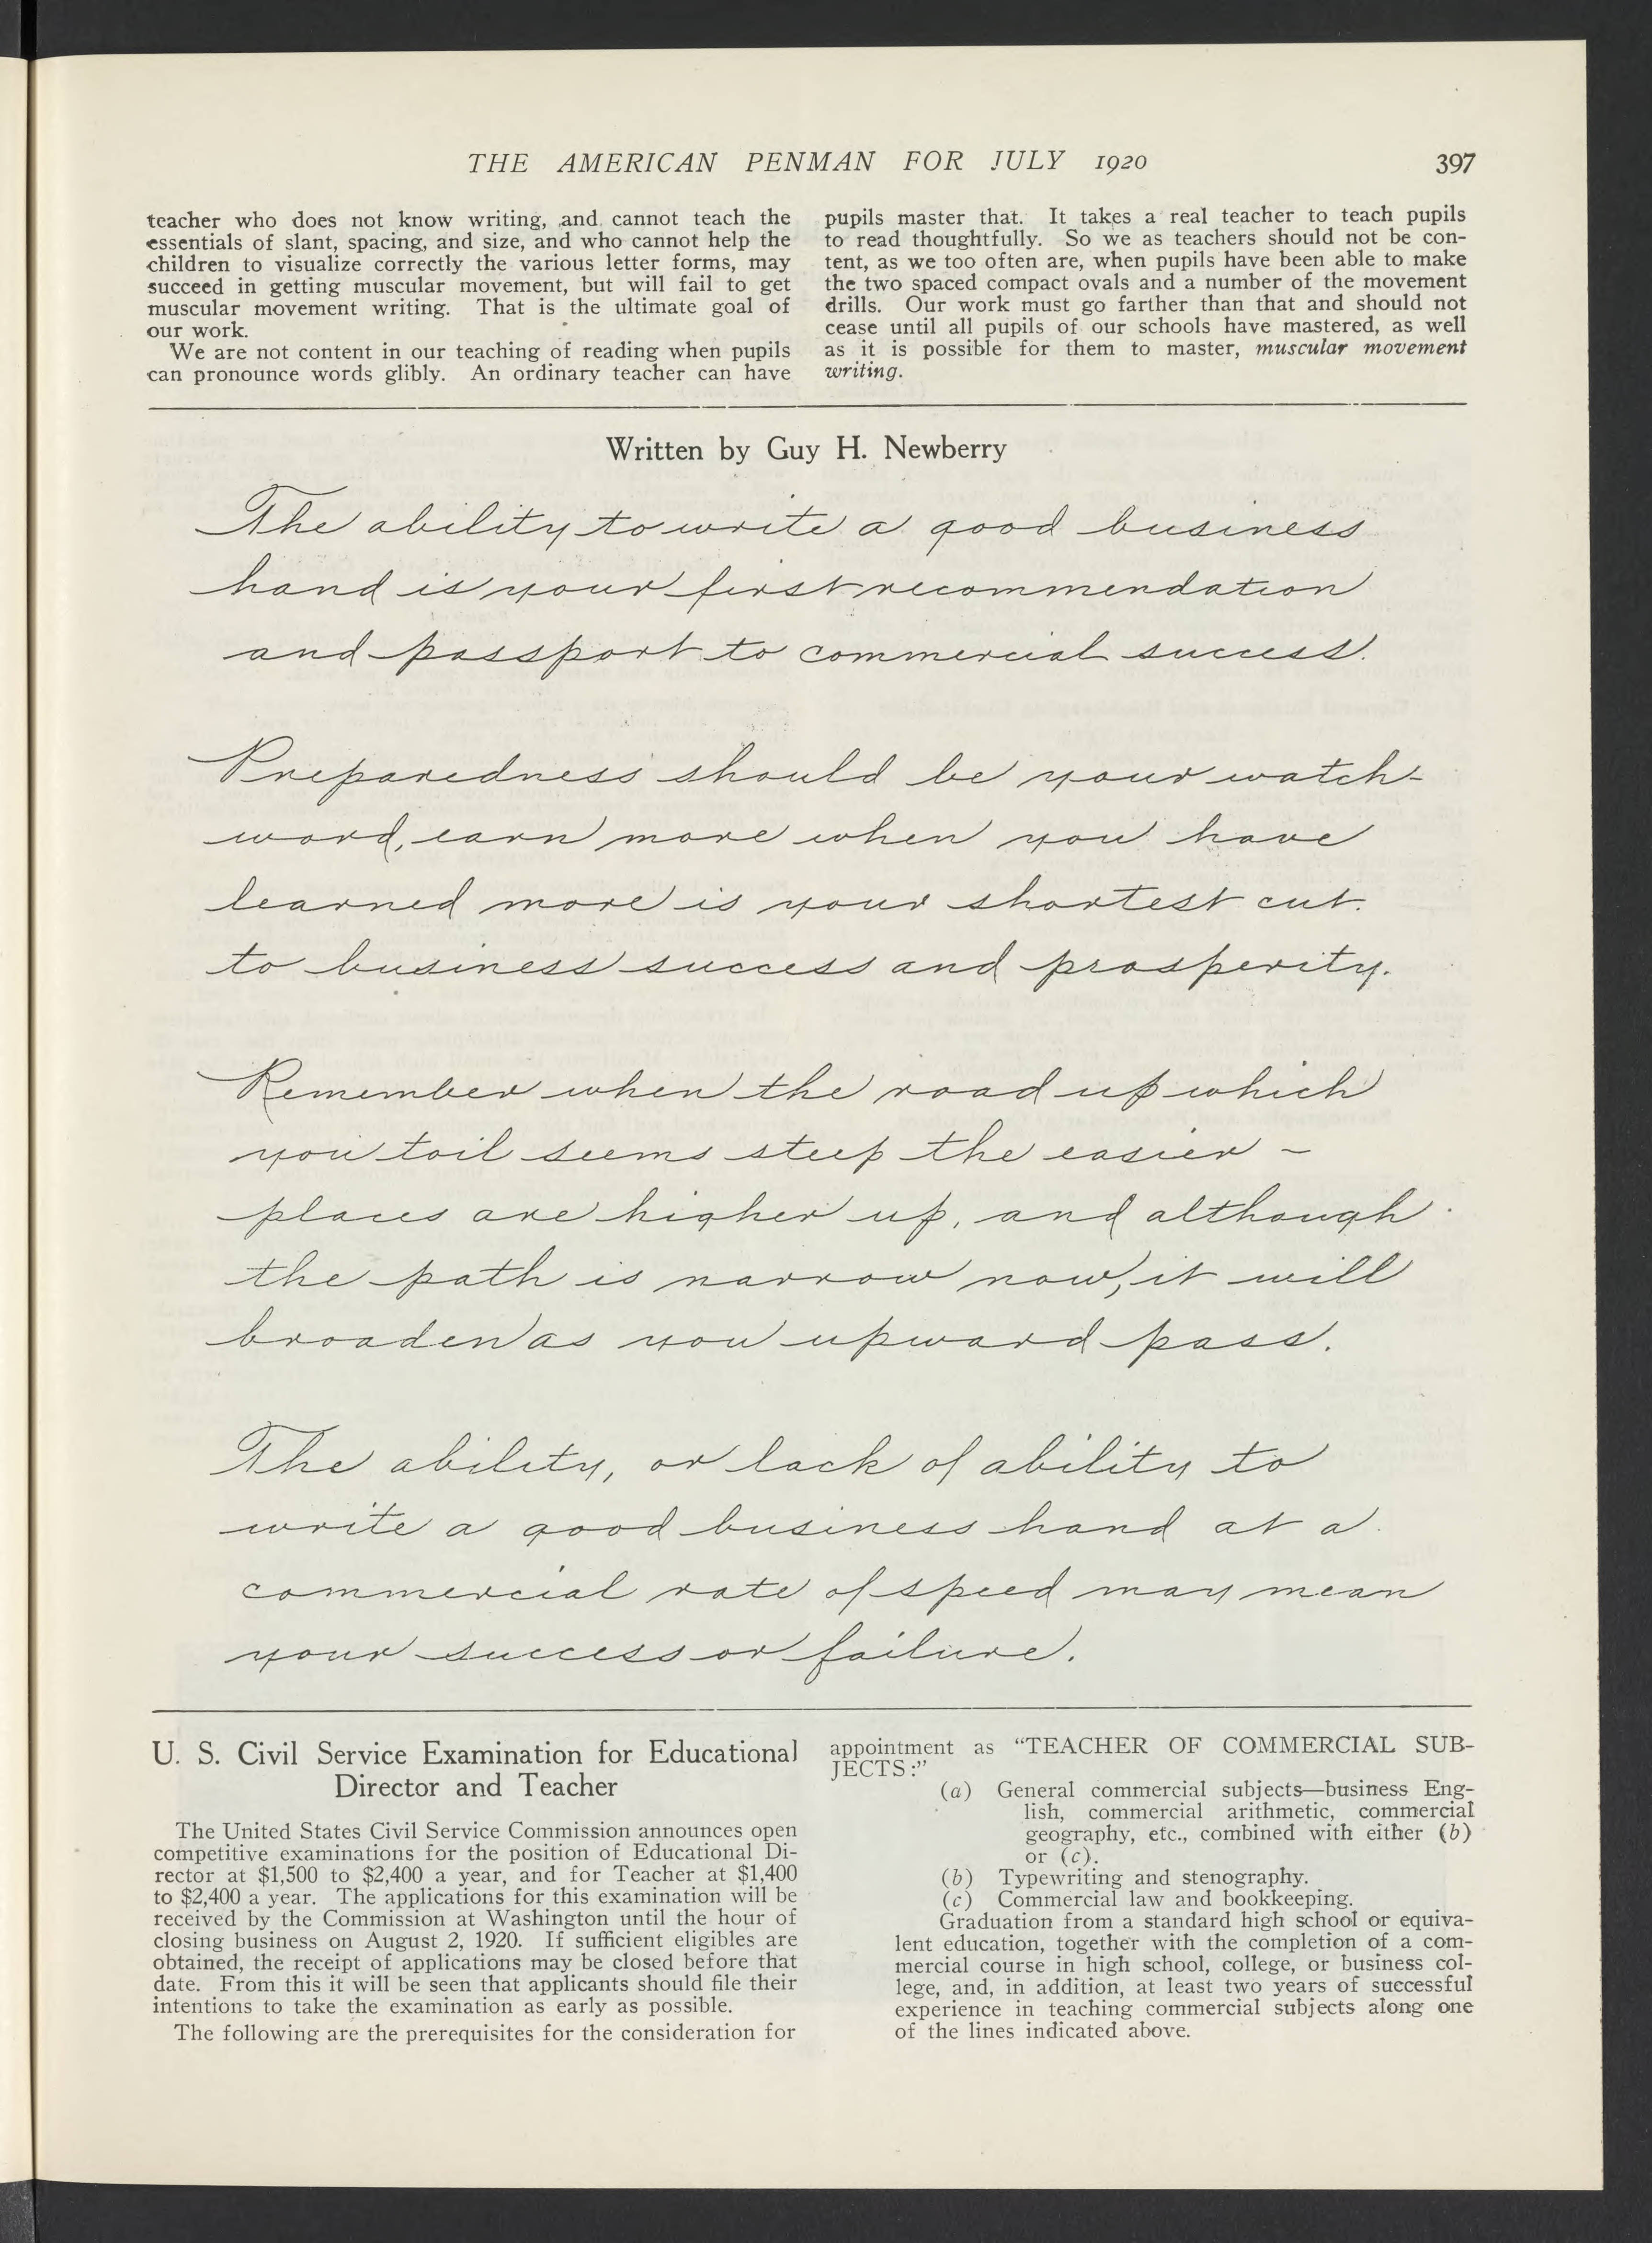 THE AMERICAN PENMAN FOR JULY 1920
397
teacher who does not know writing, and cannot teach the
essentials of slant, spacing, and size, and who cannot help the
children to visualize correctly the various letter forms, may
succeed in getting muscular movement, but will fail to get
muscular movement writing. That is the ultimate goal of
our work.
We are not content in our teaching of reading when pupils
can pronounce words glibly. An ordinary teacher can have
pupils master that. It takes a real teacher to teach pupils
to read thoughtfully. So we as teachers should not be con-
tent, as we too often are, when pupils have been able to make
the two spaced compact ovals and a number of the movement
drills. Our work must go farther than that and should not
cease until all pupils of our schools have mastered, as well
as it is possible for them to master, muscular movement
writing.
Written by Guy H. Newberry
The ability to write a good business
hand is your first recommendation
and passport to commercial success.
Preparedness should be your watch-
word, earn more when you have
learned more is your shortest cut
to business success and prosperity.
Remember when the road up which
you toil seems steep the easier -
places are higher up, and although
the path is narrow now, it will
broaden as you upward pass.
The ability, or lack of ability to
write a good business hand at a
commercial rate of speed may mean
your success or failure.
U. S. Civil Service Examination for Educational
Director and Teacher
The United States Civil Service Commission announces open
competitive examinations for the position of Educational Di-
rector at $1,500 to $2,400 a year, and for Teacher at $1,400
to $2,400 a year. The applications for this examination will be
received by the Commission at Washington until the hour of
closing business on August 2, 1920. If sufficient eligibles are
obtained, the receipt of applications may be closed before that
date. From this it will be seen that applicants should file their
intentions to take the examination as early as possible.
The following are the prerequisites for the consideration for
appointment as "TEACHER OF COMMERCIAL SUB-
JECTS:"
(a) General commercial subjects—business Eng-
lish, commercial arithmetic, commercial
geography, etc., combined with either (b)
or (c).
(b) Typewriting and stenography.
(c) Commercial law and bookkeeping.
Graduation from a standard high school or equiva-
lent education, together with the completion of a com-
mercial course in high school, college, or business col-
lege, and, in addition, at least two years of successful
experience in teaching commercial subjects along one
of the lines indicated above.